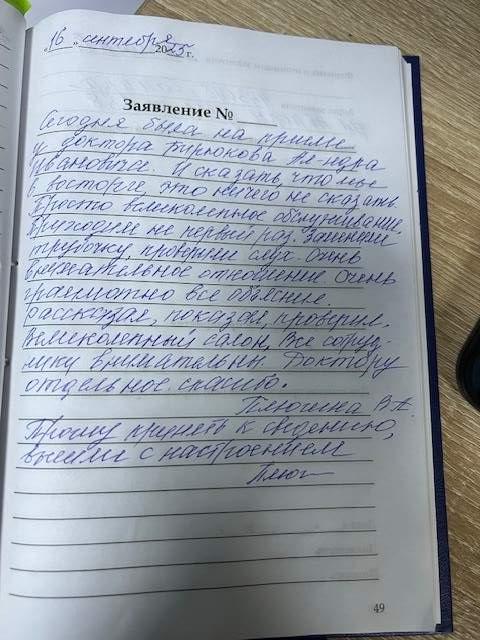 „16" сентября 2025 г.
Заявление №
Сегодня была на приеме
у доктора Бирюкова Ал-ндра
Ивановича. И сказать, что мы
в восторге, это ничего не сказать
Просто великолепное обслуживание.
Приходим не первый раз. Заменили
трубочку, проверили слух. Очень
внимательное отношение. Очень
грамотно все объяснил.
рассказал, показал, проверил.
Великолепный салон, Все сотруд-
ники внимательны. Доктору
отдельное спасибо.
Плюснина В.А.
Прошу принять к сведению,
вышли с настроением
49